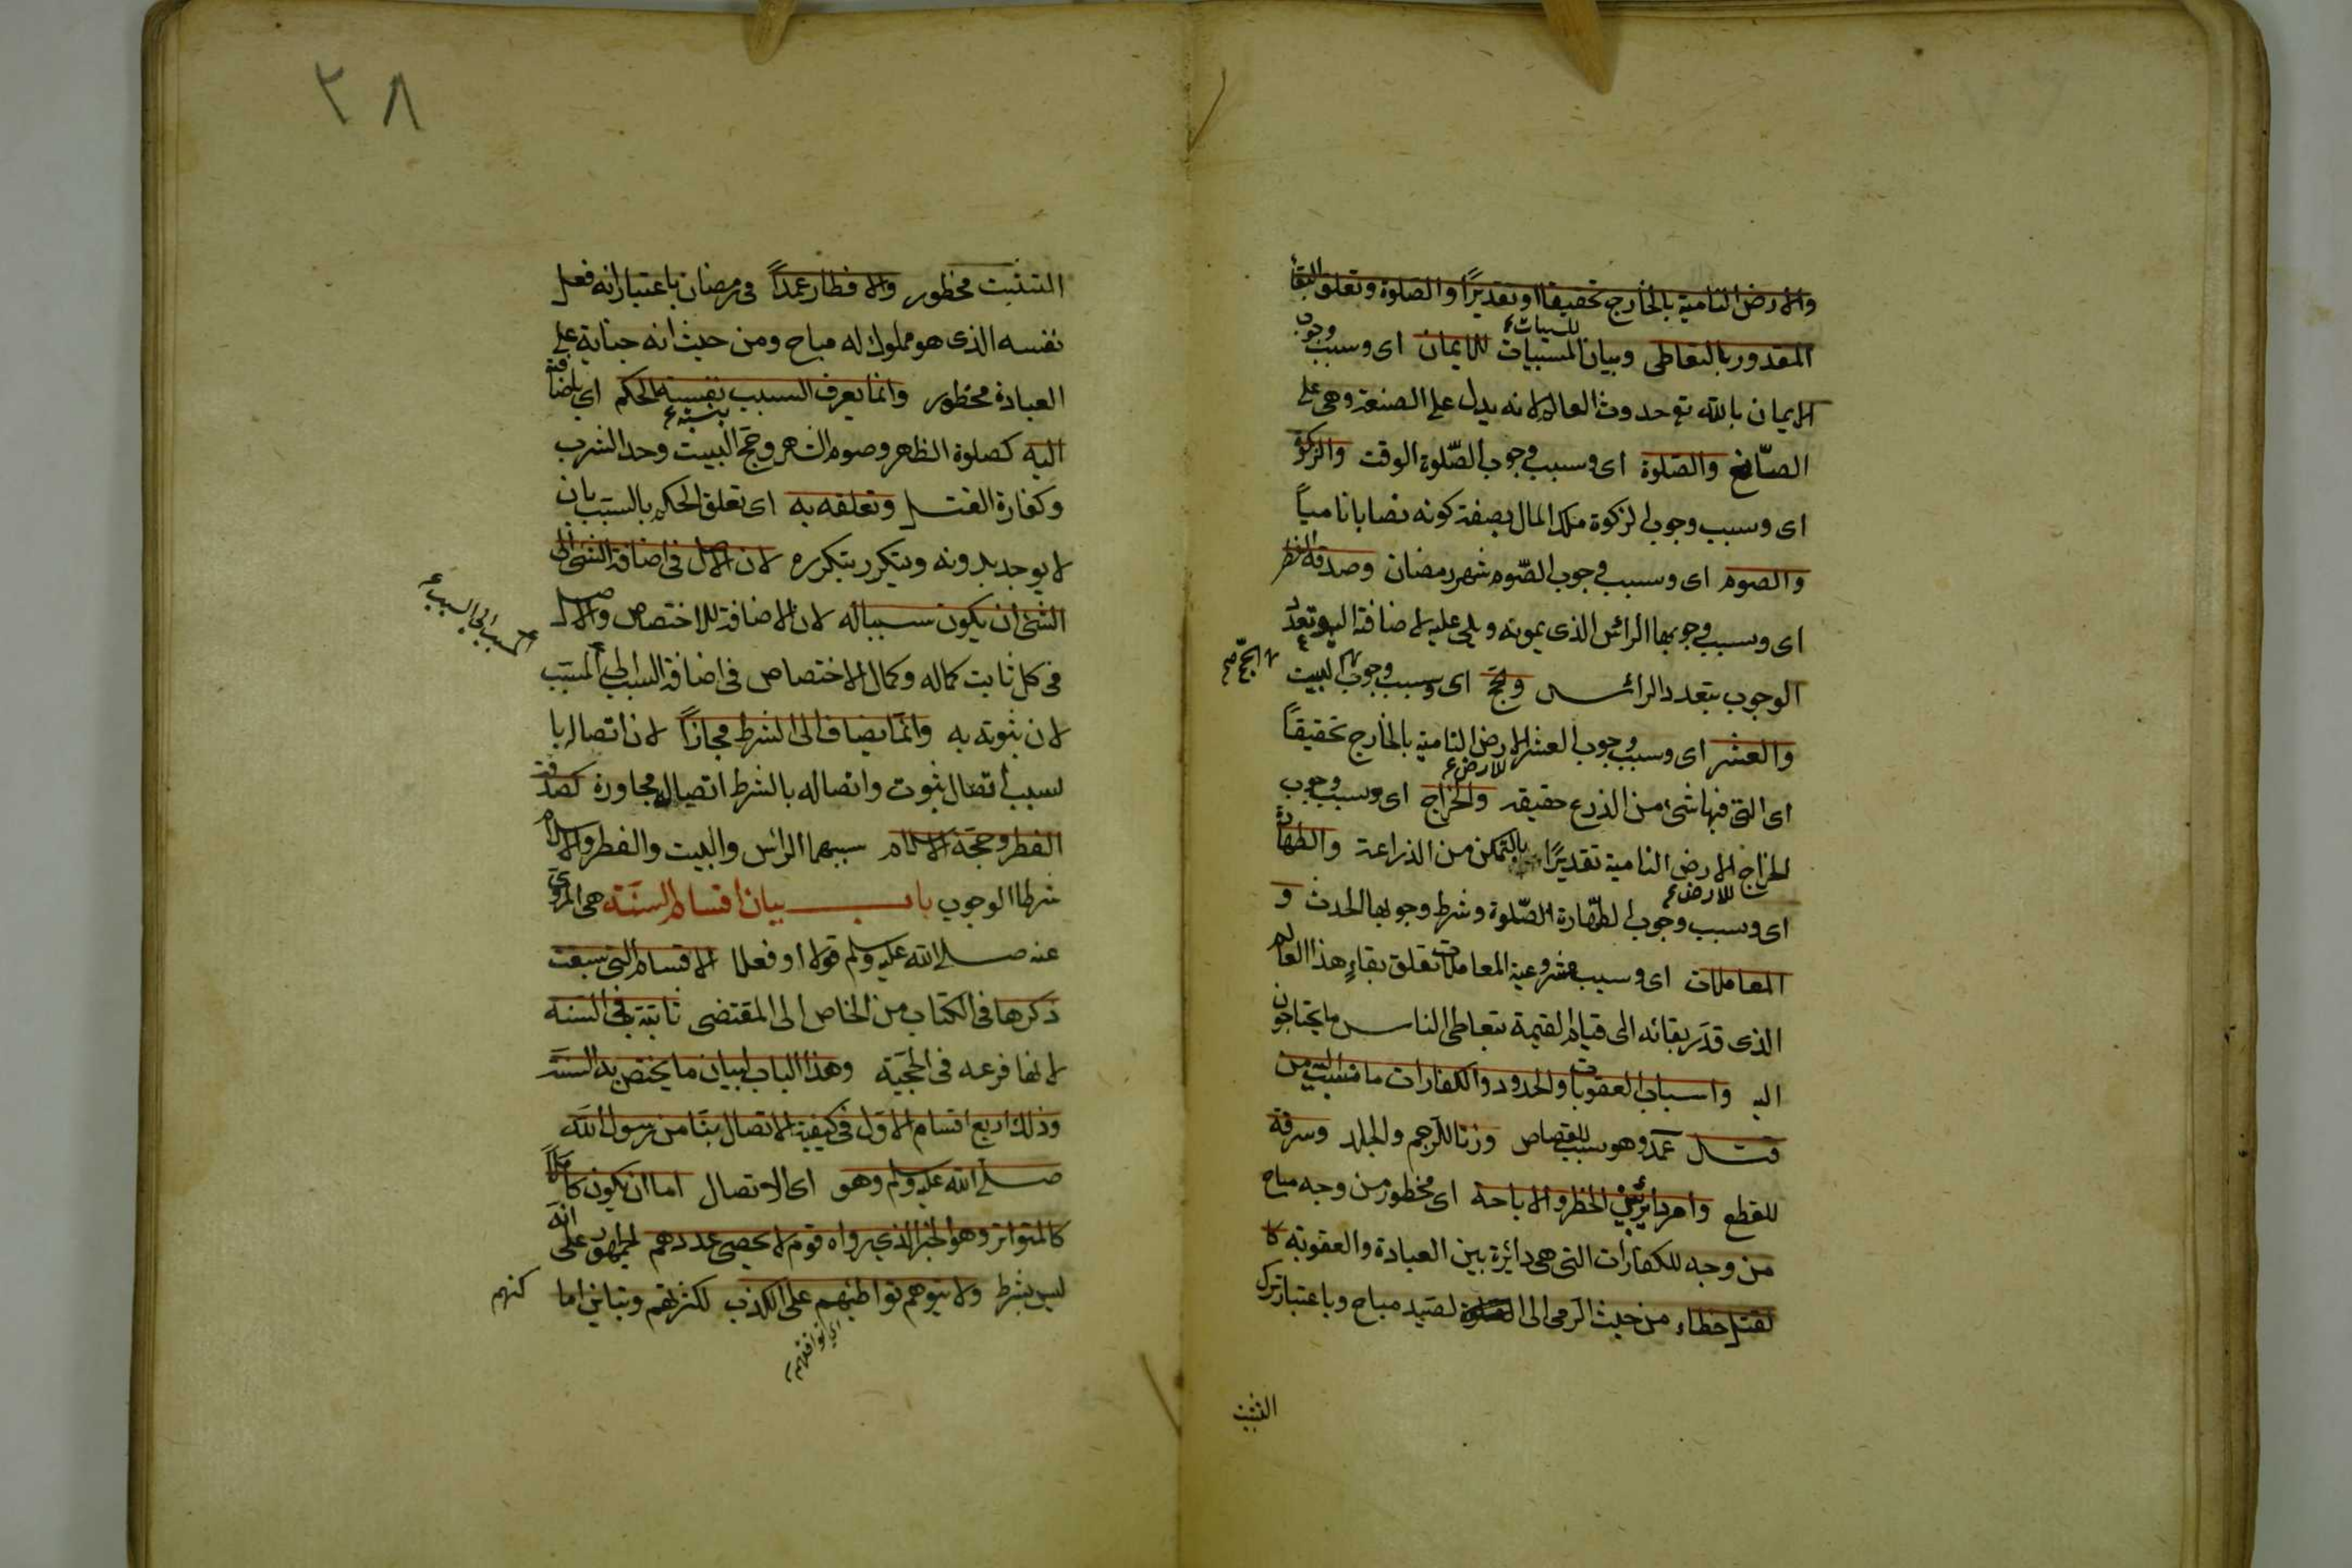 والارض النامية بالخارج تحقيقا او تقديرًا والصلوة وتعلق البقاء
المقدور بالتعاطى وبيان المسببات للايمان اى وسبب وجوب
للمسببات
الايمان بالله تع حدوث العالم لانه يدل على الصنعة وهى على
الصانع والصلوة اى وسبب وجوب الصّلوة الوقت والزكوة
اى وسبب وجوب الزكوة ملك المال بصفة كونه نصابا ناميا
والصوم اى وسبب وجوب الصّوم شهر رمضان وصدقة الفطر
اى وسبب وجوبها الرائس الذى يمونه ويلى عليه لاضافة اليه وتعدد
الوجوب بتعدد الرائس والحج اى وسبب وجوب البيت
الحج صح
والعشر اى وسبب وجوب العشر الارض النامية بالخارج تحقيقاً
للارض
اى التى فيها شئ من الذرع حقيقه والخراج اى وسبب وجوب
الخراج الارض النامية تقديرًا بالتمكن من الذراعة والطهارة
للارض
اى وسبب وجوب الطهّارة الصّلوة وشرط وجوبها الحدث و
المعاملات اى وسبب مشروعية المعاملات تعلق بقاء هذا العالم
الذى قدّر بقائه الى قيام القيمة بتعاطى الناس ما يحتاجون
اليه واسباب العقوبات والحدود والكفارات ما نسبت اليه من
قتل عمد وهو سبب للقصاص وزنا للرجم والجلد وسرقة
للقطع وامر دائر بين الحظر والاباحة اى محظور من وجه مباح
من وجه للكفارات التى هى دائرة بين العبادة والعقوبة كا
لقتل خطاء من حيث الرمى الى لصيد مباح وباعتبار ترك
التثبت
٣٨
التثبت محظور والافطار عمداً فى رمضان باعتبار انه فعل
نفسه الذى هو مملوك له مباح ومن حيث انه جناية على
العبادة محظور وانما يعرف السبب بنسبة الحكم اى باضافته
بنسبة
اليه كصلوة الظهر وصوم الشهر وحج البيت وحد الشرب
وكفارة القتل وتعلقه به اى تعلق الحكم بالسبب بان
لا يوجد بدونه ويتكرر بتكرره لان الاصل فى اضافة الشئ الى
الشئ ان يكون سببا له لان الاضافة للاختصاص والاصل
فى كل ثابت كماله وكمال الاختصاص فى اضافة السبب الى المسبب
المسبب الى السبب
لان ثبوته به وانما يضاف الى الشرط مجازاً لان اتصاله با
لسبب اتصال ثبوت واتصاله بالشرط اتصال مجاورة كصدقة
الفطر وحجة الاسلام سببهما الرائس والبيت والفطر والاسلام
شرطا الوجوب باب بيان اقسام السنّة هى المروى
عنه صلى الله عليه وسلم قولا او فعلا الاقسام التى سبقت
ذكرها فى الكتاب من الخاص الى المقتضى ثابتة فى السنه
لانها فرعه فى الحجية وهذا الباب لبيان ما يختص به السنّة
وذلك اربع اقسام الاوّل فى كيفية الاتصال بنا من رسول الله
صلى الله عليه وسلم وهو اى الاتصال اما ان يكون كاملاً
كالمتواتر وهو الخبر الذى رواه قوم لا يحصى عددهم الجمهور على انه
ليس بشرط ولا يتوهم تواطئهم على الكذب لكثرتهم وتباين اما
كنهم
اى توافقهم